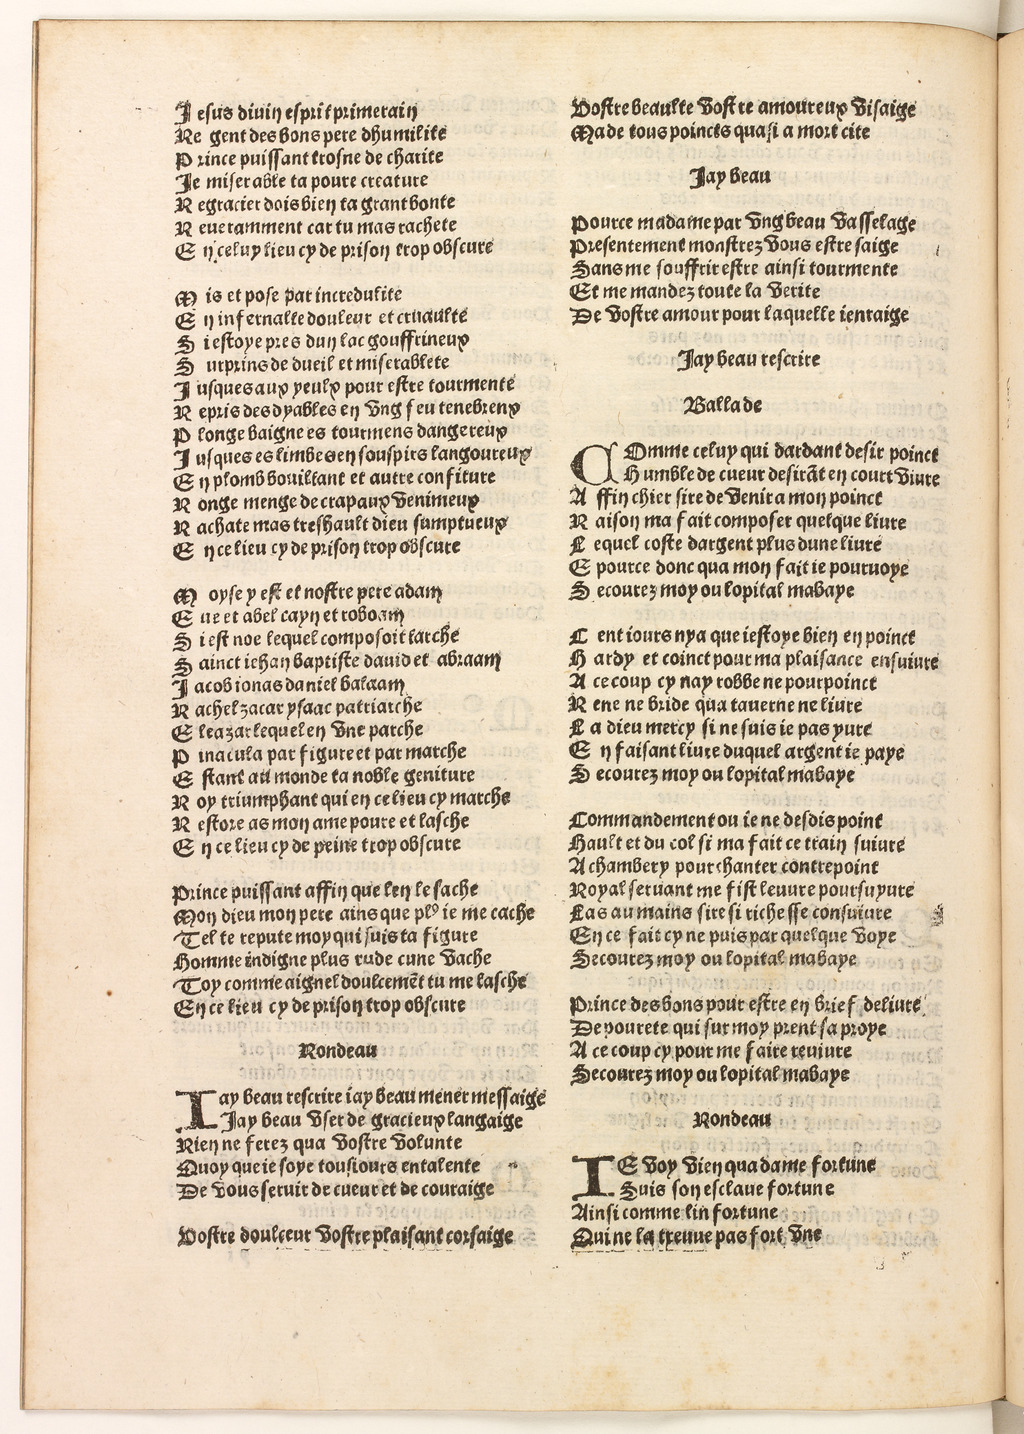 Jesus divin esprit primerain
Regent des bons pere dhumilite
Prince puissant trosne de charite
Je miserable ta poure creature
Regracier dois bien ta grant bonte
Reveramment car tu mas rachete
En celuy lieu cy de prison trop obscure
Mis et pose par incredulite
En infernalle douleur et cruaulte
Si estoye pres dun lac gouffrineux
Surprins de dueil et miserablete
Jusques aux yeulx pour estre tourmente
Repris des dyables en vng feu tenebreux
Plonge baigne es tourmens dangereux
Jusques es limbes en souspirs langoureux
En plomb bouillant et autre confiture
Ronge menge de crapaux venimeux
Rachate mas treshault dieu sumptueux
En ce lieu cy de prison trop obscure
Moyse y est et nostre pere adam
Eue et abel cayn et roboam
Si est noe lequel composoit larche
Sainct iehan baptiste dauid et abraam
Jacob ionas daniel balaam
Rachel zacar ysaac patriarche
Eleazar lequel en vne parche
Pinacula par figure et par marche
Estant au monde ta noble geniture
Roy triumphant qui en ce lieu cy marche
Restore as mon ame poure et lasche
En ce lieu cy de peine trop obscure
Prince puissant affin que len le sache
Mon dieu mon pere ains que plꝰ ie me cache
Tel te repute moy qui suis ta figure
Homme indigne plus rude cune vache
Toy comme aignel doulcemēt tu me lasche
En ce lieu cy de prison trop obscure
Rondeau
Iay beau rescrire iay beau mener messaige
Jay beau vser de gracieux langaige
Rien ne ferez qua vostre volunte
Quoy que ie soye tousiours entalente
De vous seruir de cueur et de couraige
Vostre doulceur vostre plaisant corsaige
Vostre beaulte vostre amoureux visaige
Ma de tous poincts quasi a mort cite
Jay beau
Pource madame par vng beau vasselage
Presentement monstrez vous estre saige
Sans me souffrir estre ainsi tourmente
Et me mandez toute la verite
De vostre amour pour laquelle ienraige
Jay beau rescrire
Ballade
COmme celuy qui dardant desir poinct
Humble de cueur desirāt en court viure
Affin chier sire de venir a mon poinct
Raison ma fait composer quelque liure
Lequel coste dargent plus dune liure
E pource donc qua mon fait ie pouruoye
Secourez moy ou lopital mabaye
Cent iours nya que iestoye bien en poinct
Hardy et coinct pour ma plaisance ensuiure
A ce coup cy nay robbe ne pourpoinct
Rene ne bride qua tauerne ne liure
La dieu mercy si ne suis ie pas yure
En faisant liure duquel argent ie paye
Secourez moy ou lopital mabaye
Commandement ou ie ne desdis point
Hault et du col si ma fait ce train suiure
A chambery pour chanter contrepoint
Royal seruant me fist leuure poursuyure
Las au mains sire si richesse consuiure
En ce fait cy ne puis par quelque voye
Secourez moy ou lopital mabaye
Prince des bons pour estre en brief deliure
De pourete qui sur moy prent sa proye
A ce coup cy pour me faire reuiure
Secourez moy ou lopital mabaye
Rondeau
IE voy bien qua dame fortune
Suis son esclaue fortune
Ainsi comme linfortune
Qui ne la treuue pas fort vne